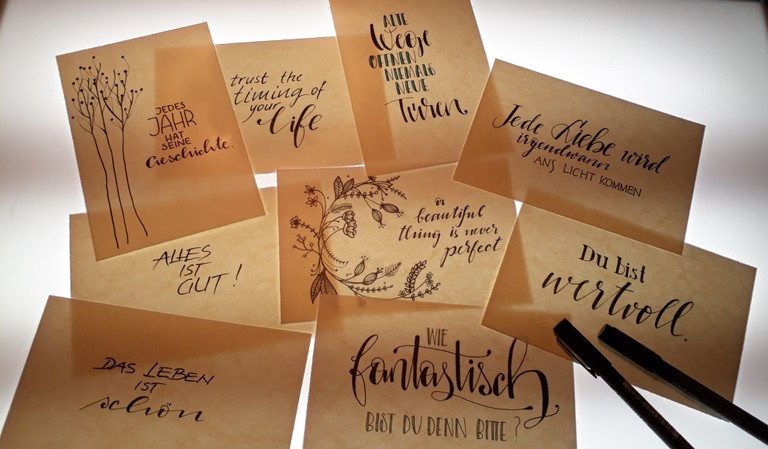 JEDES
JAHR
HAT
SEINE
Geschichte.
trust the
timing of
your life
ALTE
Wege
ÖFFNEN
NIEMALS
NEUE
Türen
Jede Liebe wird
irgendwann
ANS LICHT KOMMEN
ALLES
IST
GUT!
a beautiful
thing is never
perfect
Du bist
wertvoll.
DAS LEBEN
IST
schön
WIE
fantastisch
BIST DU DENN BITTE?